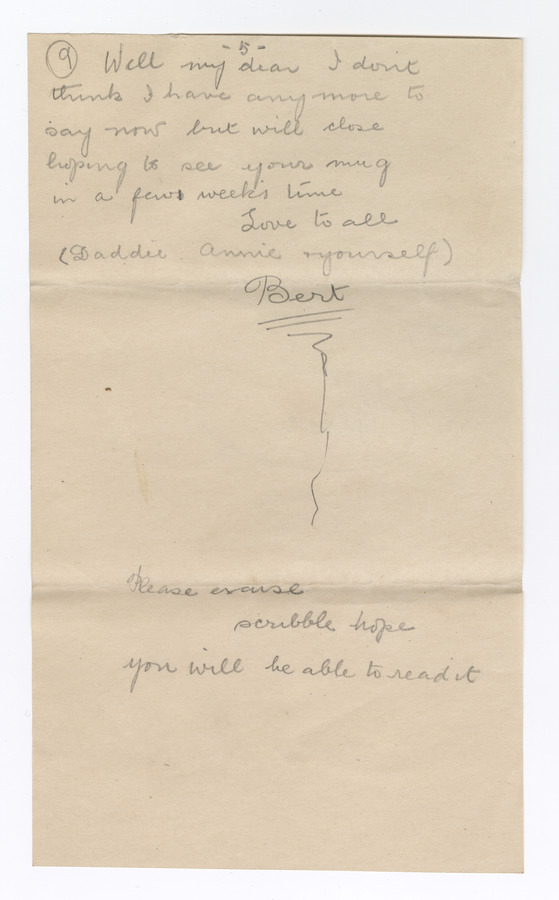 - 5 -
9 Well my dear I don't
think I have any more to
say now but will close
hoping to see your mug
in a few weeks time
Love to all
(Daddie Annie & yourself)
Bert
Please excuse
scribble hope
you will be able to read it